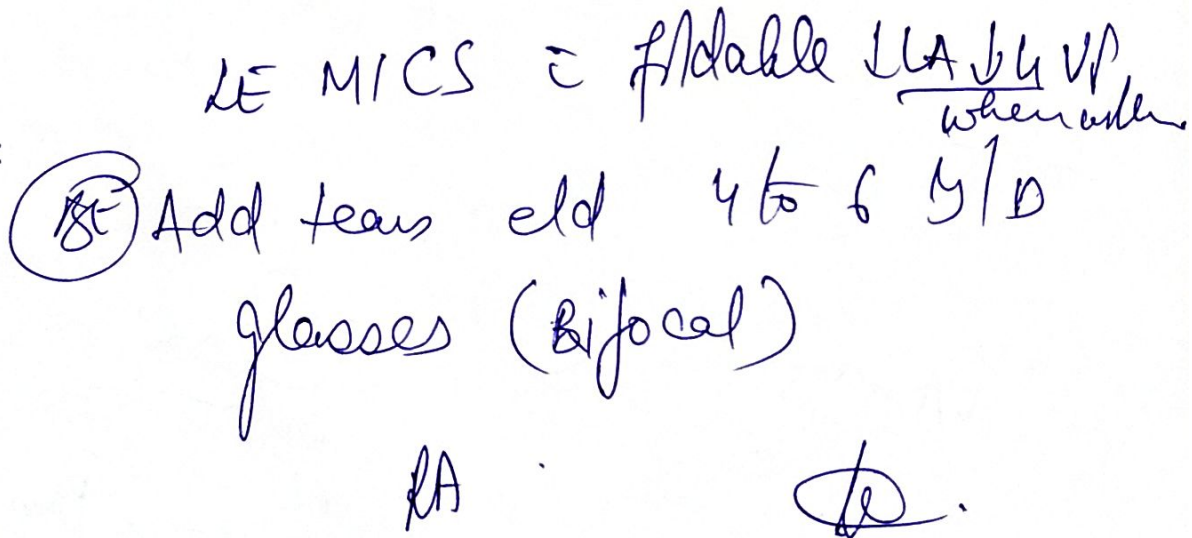 LE MICS c̄ foldable ↓LA ↓ G VP
when
BE Add tears eld 4 to 6 /D
glasses (Bifocal)
RA